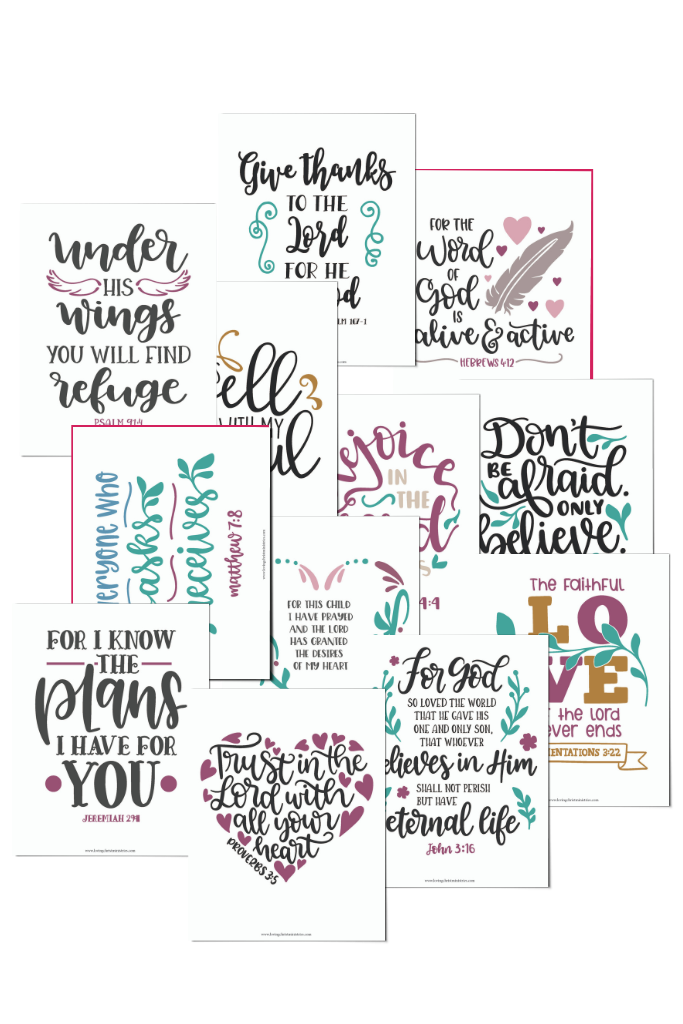 Give thanks
TO THE
Lord
FOR HE
under
HIS
wings
YOU WILL FIND
refuge
PSALM 91:4
FOR THE
Word
OF
God
IS
alive & active
HEBREWS 4:12
WITH MY
IN
THE
4:4
Don't
BE afraid.
ONLY
believe.
everyone who
asks
receives
matthew 7:8
FOR THIS CHILD
I HAVE PRAYED
AND THE LORD
HAS GRANTED
THE DESIRES
OF MY HEART
The Faithful
LOVE
the lord
ever ends
3:22
FOR I KNOW
THE
plans
I HAVE FOR
YOU
JEREMIAH 29:11
For God
SO LOVED THE WORLD
THAT HE GAVE HIS
ONE AND ONLY SON,
THAT WHOEVER
believes in Him
SHALL NOT PERISH
BUT HAVE
eternal life
John 3:16
Trust in the
Lord with
all your
heart
PROVERBS 3:5